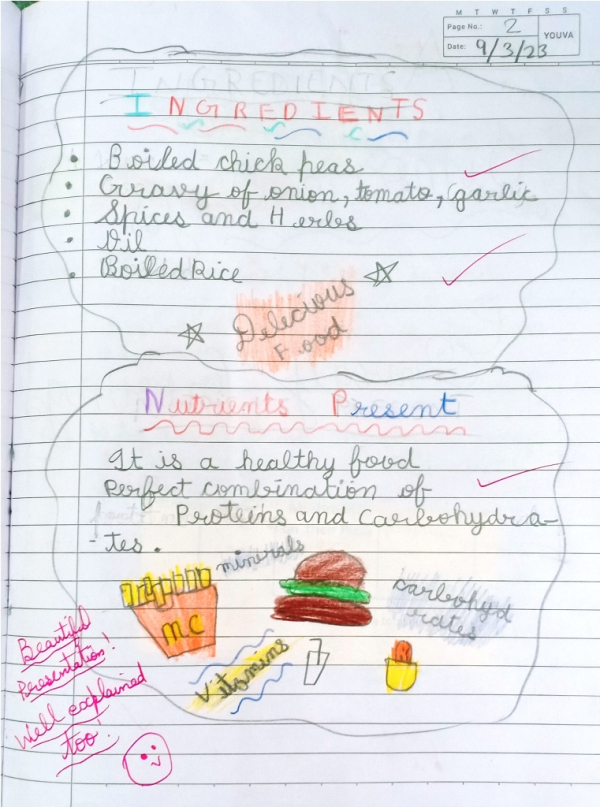 M T W T F S S
Page No.: 2
YOUVA
Date: 9/3/23
INGREDIENTS
INGREDIENTS
• Boiled chick peas
• Gravy of onion, tomato, garlic
• Spices and Herbs
• Oil
• Boiled Rice
Delicious
Food
Nutrients Present
It is a healthy food
perfect combination of
Proteins and Carbohydra-
-tes.
minerals
carbohyd
rates
MC
R
Vitamins
Beautiful
Presentation!
Well explained
too!